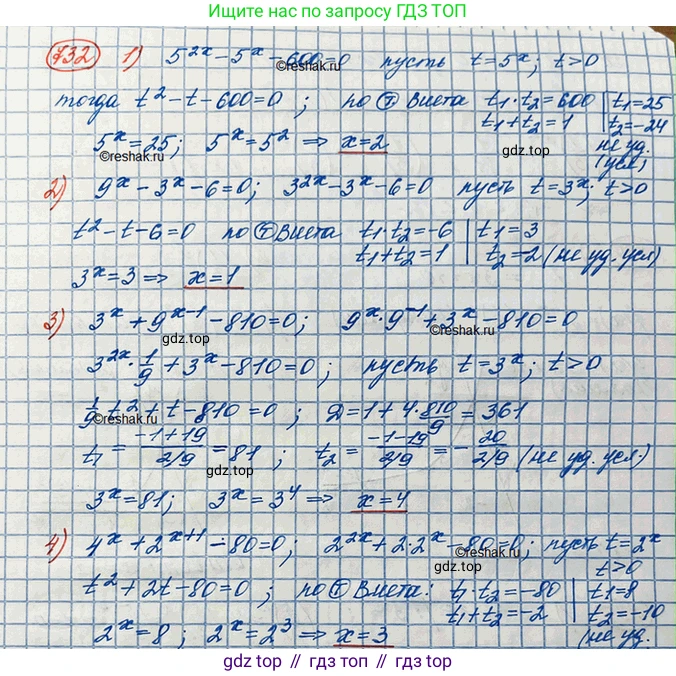 Ищите нас по запросу ГДЗ ТОП
732 1) 5^{2x} - 5^x - 600 = 0 пусть t = 5^x; t > 0
©reshak.ru
тогда t^2 - t - 600 = 0 ; по (Т) Виета t_1 · t_2 = 600 | t_1 = 25
t_1 + t_2 = 1 | t_2 = -24
5^x = 25; 5^x = 5^2 ⇒ x = 2 не уд. (усл)
©reshak.ru gdz.top
2) 9^x - 3^x - 6 = 0; 3^{2x} - 3^x - 6 = 0 пусть t = 3^x; t > 0
t^2 - t - 6 = 0 по (Т) Виета t_1 · t_2 = -6 | t_1 = 3
t_1 + t_2 = 1 | t_2 = -2 (не уд. усл)
3^x = 3 ⇒ x = 1
3) 3^x + 9^{x-1} - 810 = 0; 9^x · 9^{-1} + 3^x - 810 = 0
gdz.top ©reshak.ru
3^{2x} · 1/9 + 3^x - 810 = 0 ; пусть t = 3^x ; t > 0
1/9 t^2 + t - 810 = 0 ; D = 1 + 4 · 810/9 = 361
t_1 = (-1+19)/(2/9) = 81 ; t_2 = (-1-19)/(2/9) = - 20/(2/9) (не уд. усл)
gdz.top
3^x = 81; 3^x = 3^4 ⇒ x = 4
4) 4^x + 2^{x+1} - 80 = 0; 2^{2x} + 2 · 2^x - 80 = 0; пусть t = 2^x
©reshak.ru ©reshak.ru t > 0
t^2 + 2t - 80 = 0 ; по (Т) Виета: t_1 · t_2 = -80 | t_1 = 8
t_1 + t_2 = -2 | t_2 = -10
2^x = 8 ; 2^x = 2^3 ⇒ x = 3 (не уд.
gdz.top // гдз.топ // gdz.top // гдз.топ